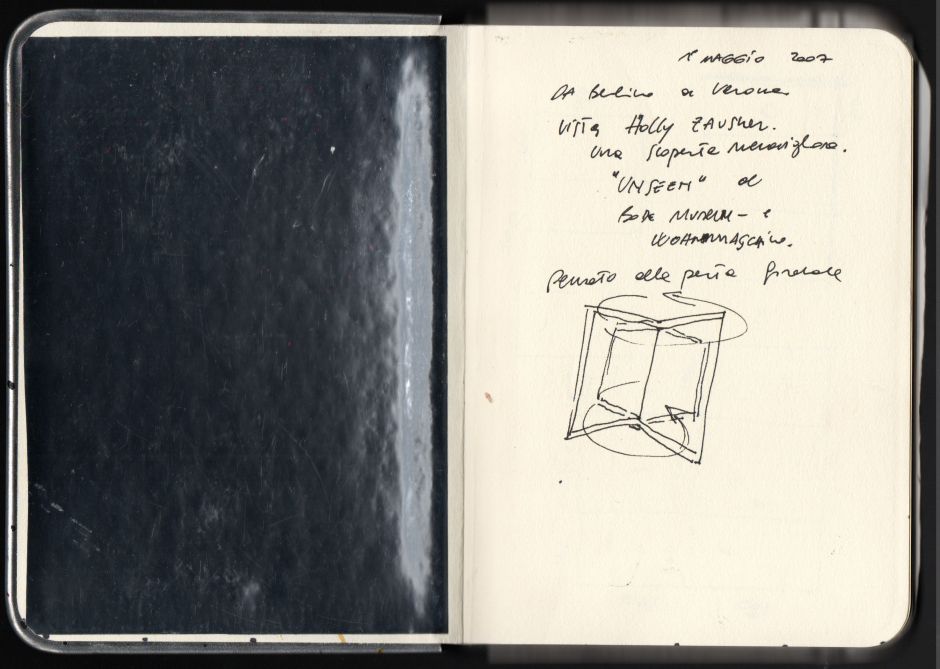 1° MAGGIO 2007
DA Berlino a Verona
VISTA Holly ZAUSNER.
Una scoperta meravigliosa.
"UNSEEN" al
BODE MUSEUM - e
Pensato alla porta girevole